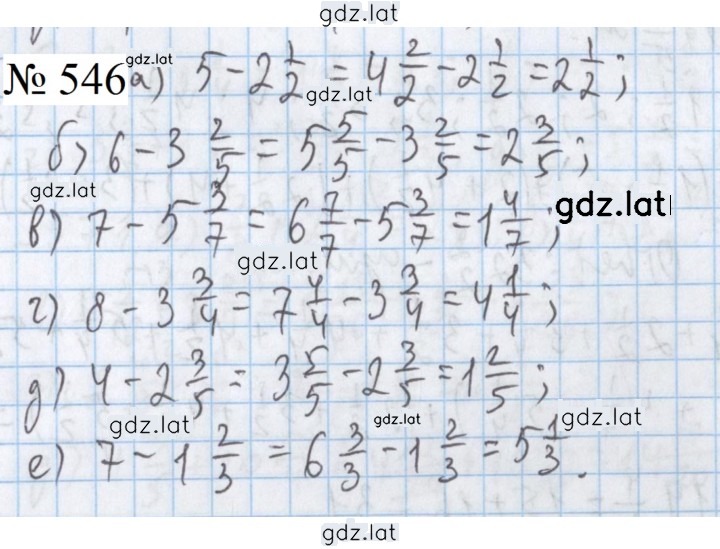 gdz.lat
gdz.lat
№ 546 а) 5 - 2 1/2 = 4 2/2 - 2 1/2 = 2 1/2;
gdz.lat
б) 6 - 3 2/5 = 5 5/5 - 3 2/5 = 2 3/5;
gdz.lat
gdz.lat
в) 7 - 5 3/7 = 6 7/7 - 5 3/7 = 1 4/7;
gdz.lat
г) 8 - 3 3/4 = 7 4/4 - 3 3/4 = 4 1/4;
д) 4 - 2 3/5 = 3 5/5 - 2 3/5 = 1 2/5;
gdz.lat gdz.lat gdz.lat
е) 7 - 1 2/3 = 6 3/3 - 1 2/3 = 5 1/3.
gdz.lat